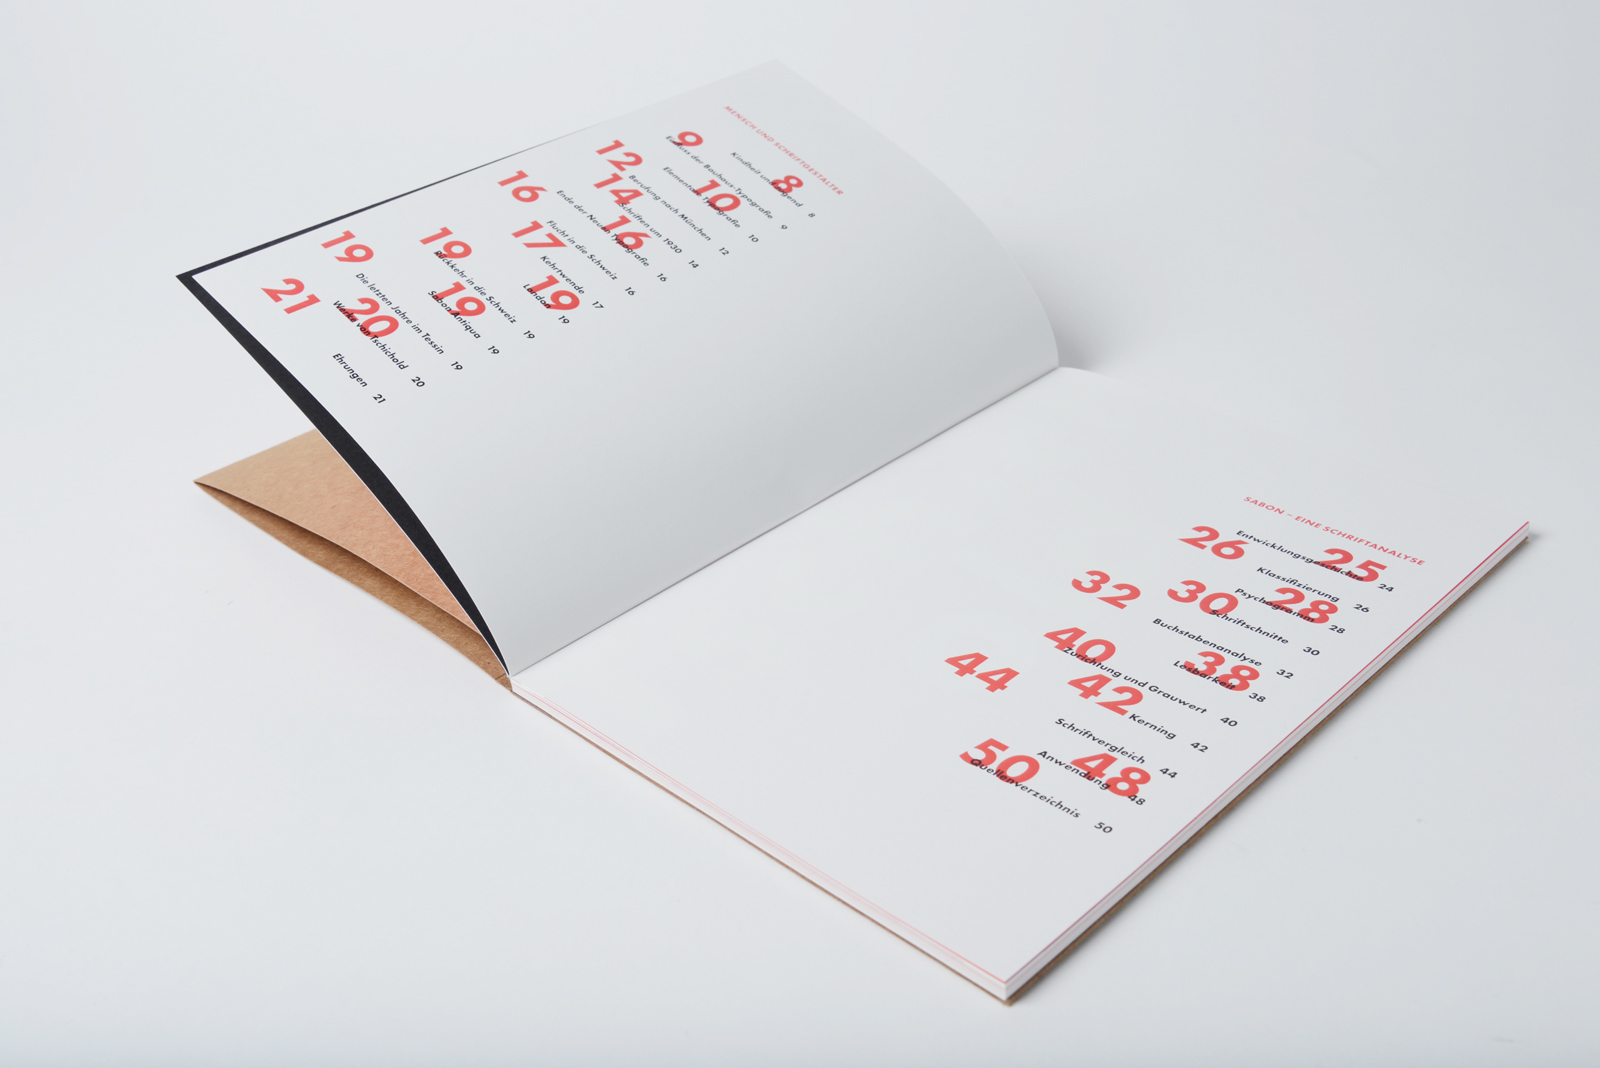 MENSCH UND SCHRIFTGESTALTER
Kindheit und Jugend 8
Einfluss der Bauhaus-Typografie 9
Elementare Typografie 10
Berufung nach München 12
Schriften um 1930 14
Ende der Neuen Typografie 16
Flucht in die Schweiz 16
Kehrtwende 17
London 19
Rückkehr in die Schweiz 19
Sabon Antiqua 19
Die letzten Jahre im Tessin 19
Werke von Tschichold 20
Ehrungen 21
9
8
12
10
14
16
16
17
19
19
19
19
20
21
SABON – EINE SCHRIFTANALYSE
Entwicklungsgeschichte 24
Klassifizierung 26
Psychogramm 28
Schriftschnitte 30
Buchstabenanalyse 32
Lesbarkeit 38
Zurichtung und Grauwert 40
Kerning 42
Schriftvergleich 44
Anwendung 48
Quellenverzeichnis 50
26
25
32
30
28
40
38
44
42
50
48